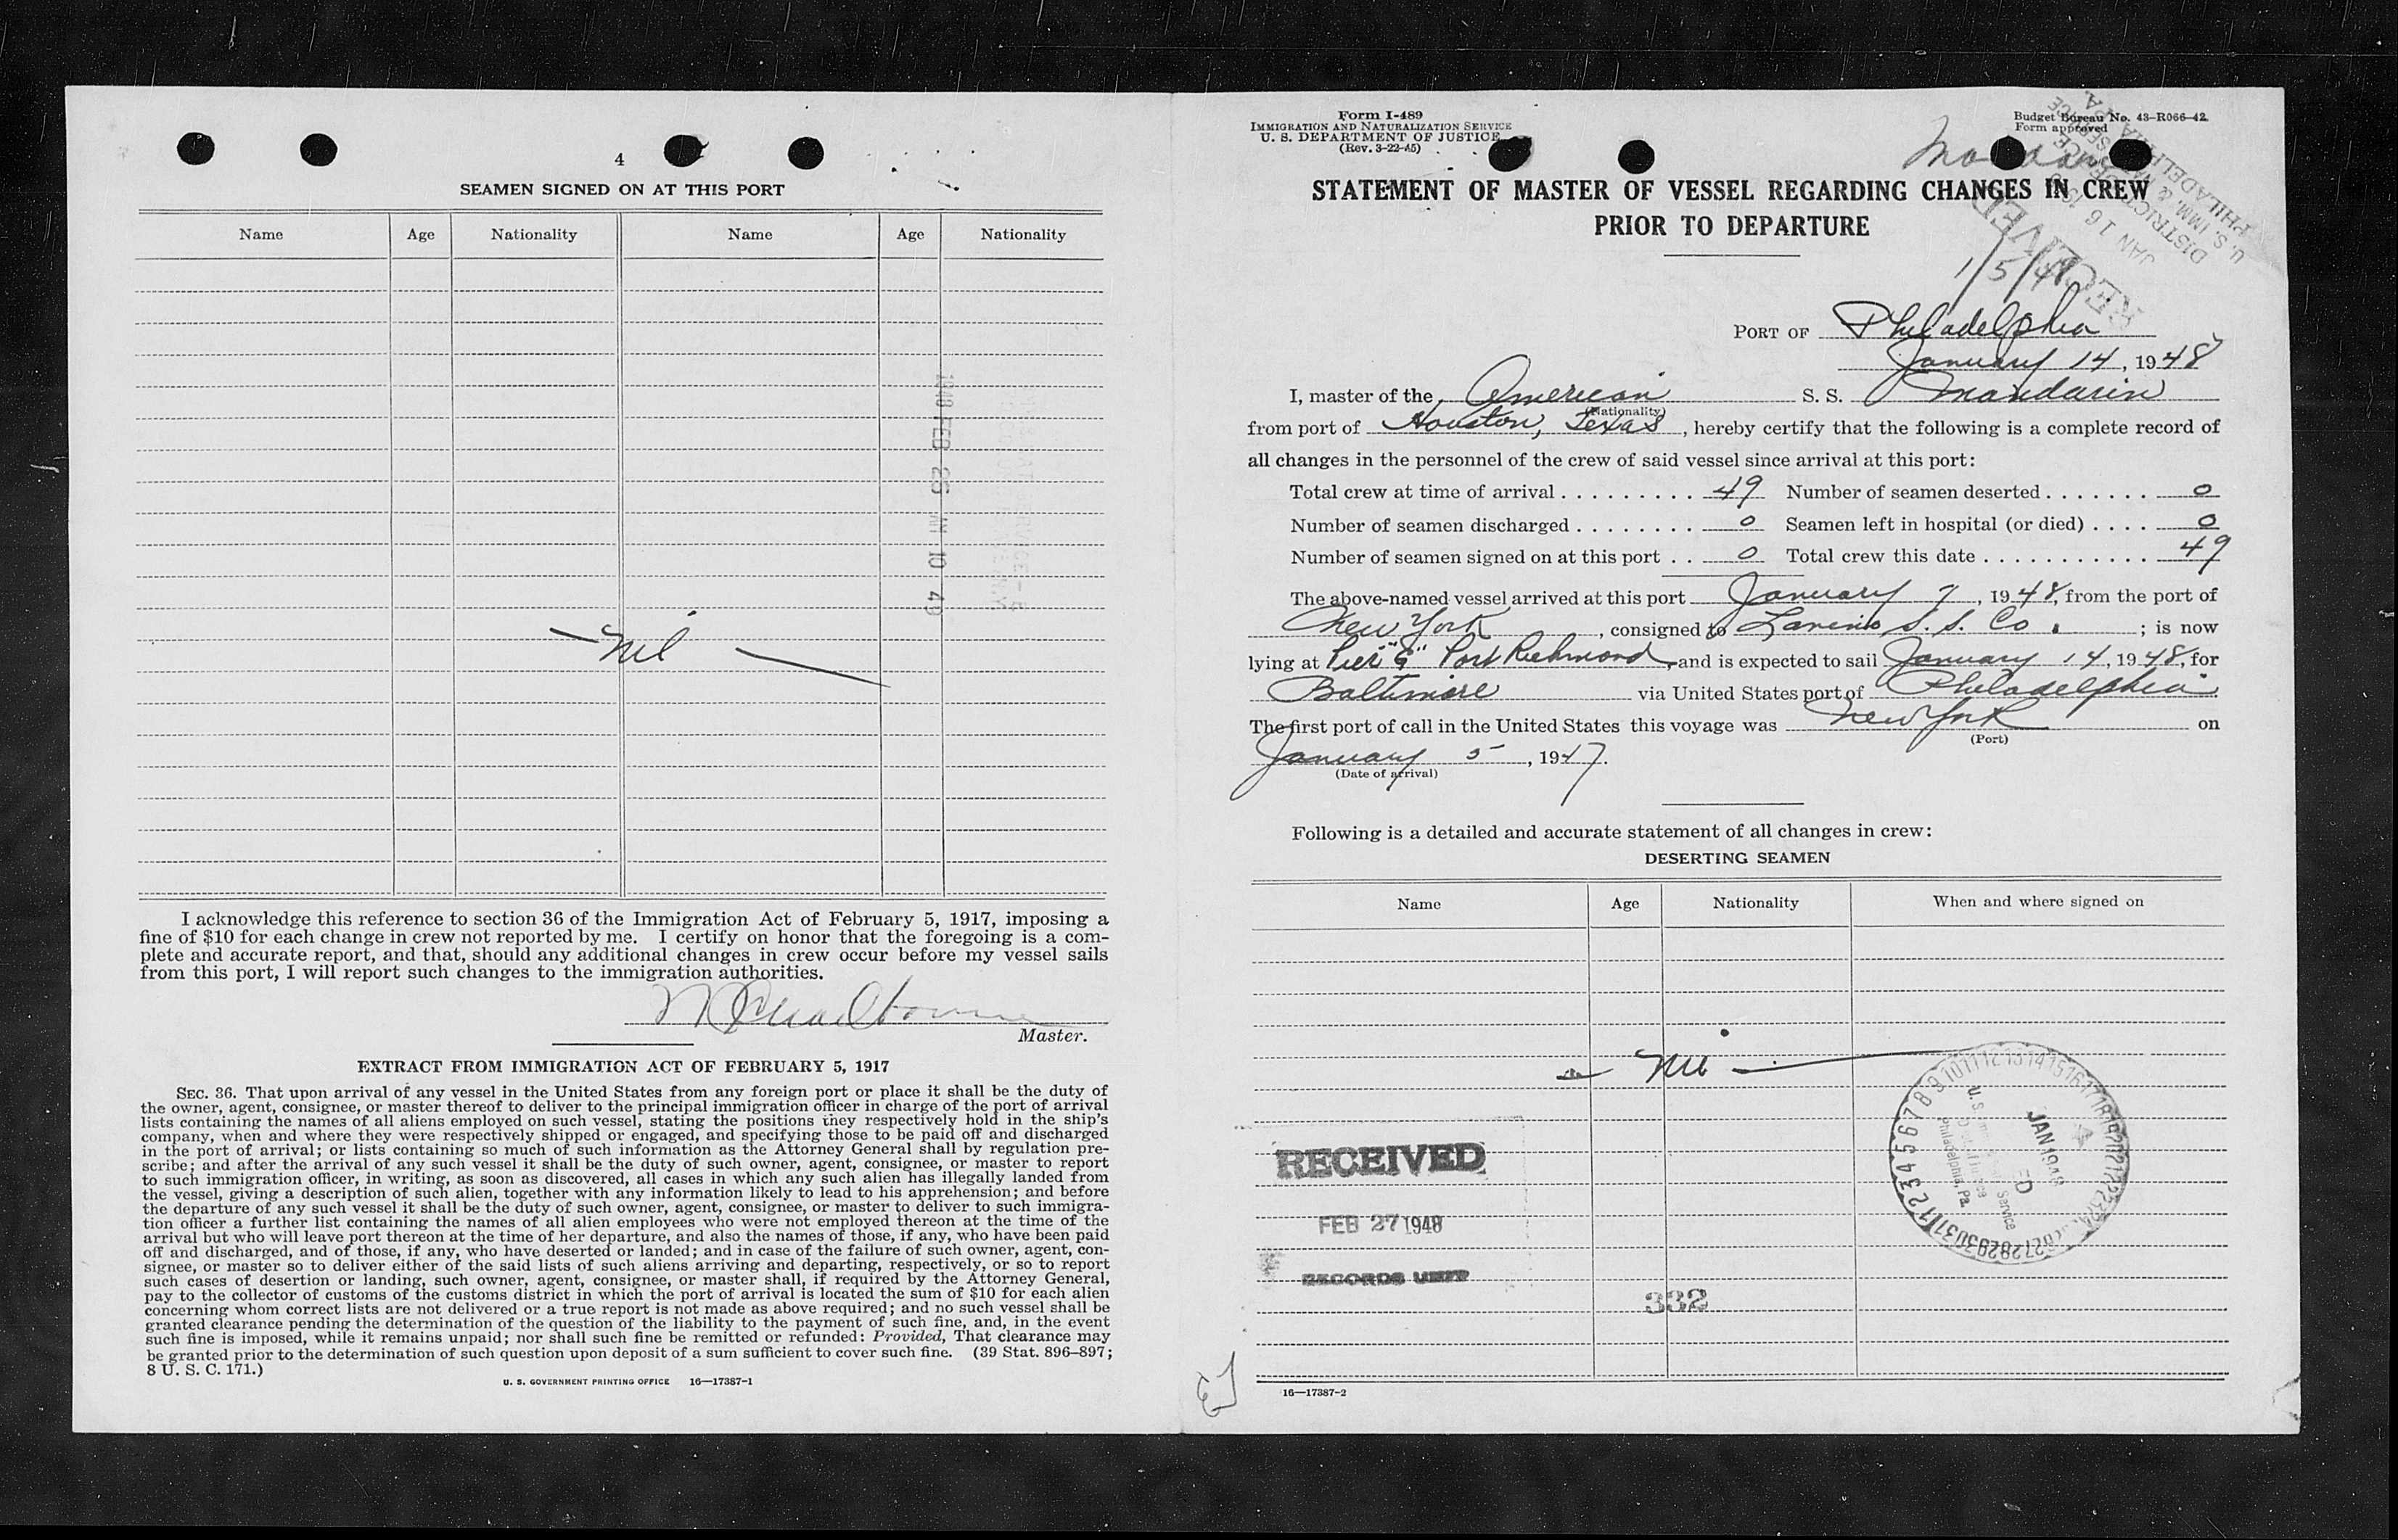 4
SEAMEN SIGNED ON AT THIS PORT
Name Age Nationality Name Age Nationality
1948 FEB 26 AM 10 49
— Nil —
I acknowledge this reference to section 36 of the Immigration Act of February 5, 1917, imposing a
fine of $10 for each change in crew not reported by me. I certify on honor that the foregoing is a com-
plete and accurate report, and that, should any additional changes in crew occur before my vessel sails
from this port, I will report such changes to the immigration authorities.
Master.
EXTRACT FROM IMMIGRATION ACT OF FEBRUARY 5, 1917
SEC. 36. That upon arrival of any vessel in the United States from any foreign port or place it shall be the duty of
the owner, agent, consignee, or master thereof to deliver to the principal immigration officer in charge of the port of arrival
lists containing the names of all aliens employed on such vessel, stating the positions they respectively hold in the ship's
company, when and where they were respectively shipped or engaged, and specifying those to be paid off and discharged
in the port of arrival; or lists containing so much of such information as the Attorney General shall by regulation pre-
scribe; and after the arrival of any such vessel it shall be the duty of such owner, agent, consignee, or master to report
to such immigration officer, in writing, as soon as discovered, all cases in which any such alien has illegally landed from
the vessel, giving a description of such alien, together with any information likely to lead to his apprehension; and before
the departure of any such vessel it shall be the duty of such owner, agent, consignee, or master to deliver to such immigra-
tion officer a further list containing the names of all alien employees who were not employed thereon at the time of the
arrival but who will leave port thereon at the time of her departure, and also the names of those, if any, who have been paid
off and discharged, and of those, if any, who have deserted or landed; and in case of the failure of such owner, agent, con-
signee, or master so to deliver either of the said lists of such aliens arriving and departing, respectively, or so to report
such cases of desertion or landing, such owner, agent, consignee, or master shall, if required by the Attorney General,
pay to the collector of customs of the customs district in which the port of arrival is located the sum of $10 for each alien
concerning whom correct lists are not delivered or a true report is not made as above required; and no such vessel shall be
granted clearance pending the determination of the question of the liability to the payment of such fine, and, in the event
such fine is imposed, while it remains unpaid; nor shall such fine be remitted or refunded: Provided, That clearance may
be granted prior to the determination of such question upon deposit of a sum sufficient to cover such fine. (39 Stat. 896–897;
8 U. S. C. 171.)
U. S. GOVERNMENT PRINTING OFFICE 16—17387-1
Form I-489
IMMIGRATION AND NATURALIZATION SERVICE
U. S. DEPARTMENT OF JUSTICE
(Rev. 3-22-45)
Budget Bureau No. 43-R066-42
Form approved
STATEMENT OF MASTER OF VESSEL REGARDING CHANGES IN CREW
PRIOR TO DEPARTURE
RECEIVED
JAN 16
U. S. IMM. &
PHILADELPHIA PA.
1/5/48
PORT OF Philadelphia
January 14, 1948
I, master of the American S. S. Mandarin
(Nationality)
from port of Houston, Texas, hereby certify that the following is a complete record of
all changes in the personnel of the crew of said vessel since arrival at this port:
Total crew at time of arrival . . . . . . . . . 49 Number of seamen deserted . . . . . . . 0
Number of seamen discharged . . . . . . . . 0 Seamen left in hospital (or died) . . . . 0
Number of seamen signed on at this port . . 0 Total crew this date . . . . . . . . . . . 49
The above-named vessel arrived at this port January 7, 1948, from the port of
New York, consigned to S. S. Co.; is now
lying at Pier "G" Port Richmond, and is expected to sail January 14, 1948, for
Baltimore via United States port of Philadelphia
The first port of call in the United States this voyage was New York on
(Port)
January 5, 1947.
(Date of arrival)
Following is a detailed and accurate statement of all changes in crew:
DESERTING SEAMEN
Name Age Nationality When and where signed on
— Nil —
RECEIVED
FEB 27 1948
RECORDS UNIT
JAN 1948
Philadelphia, Pa.
332
16—17387-2